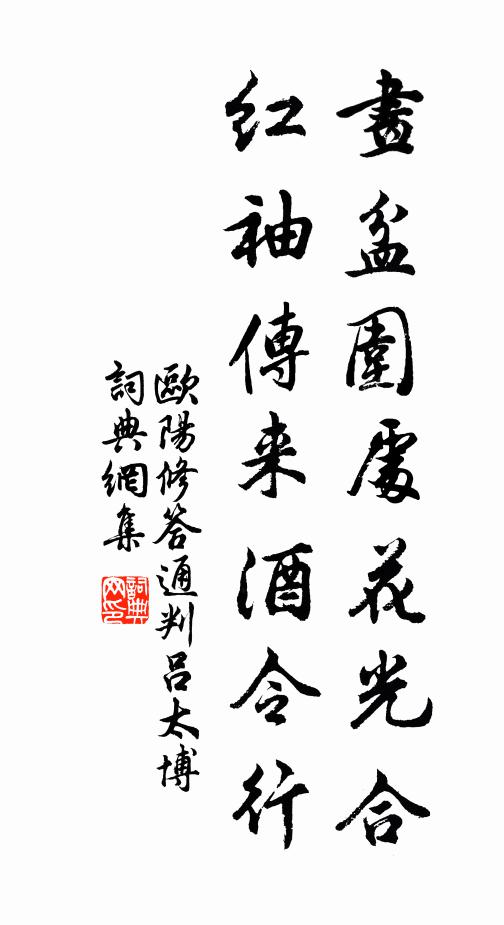 畫盆圍處花光合
紅袖傳来酒令行
歐陽修答通判呂太博
詞典網集
詞典网印